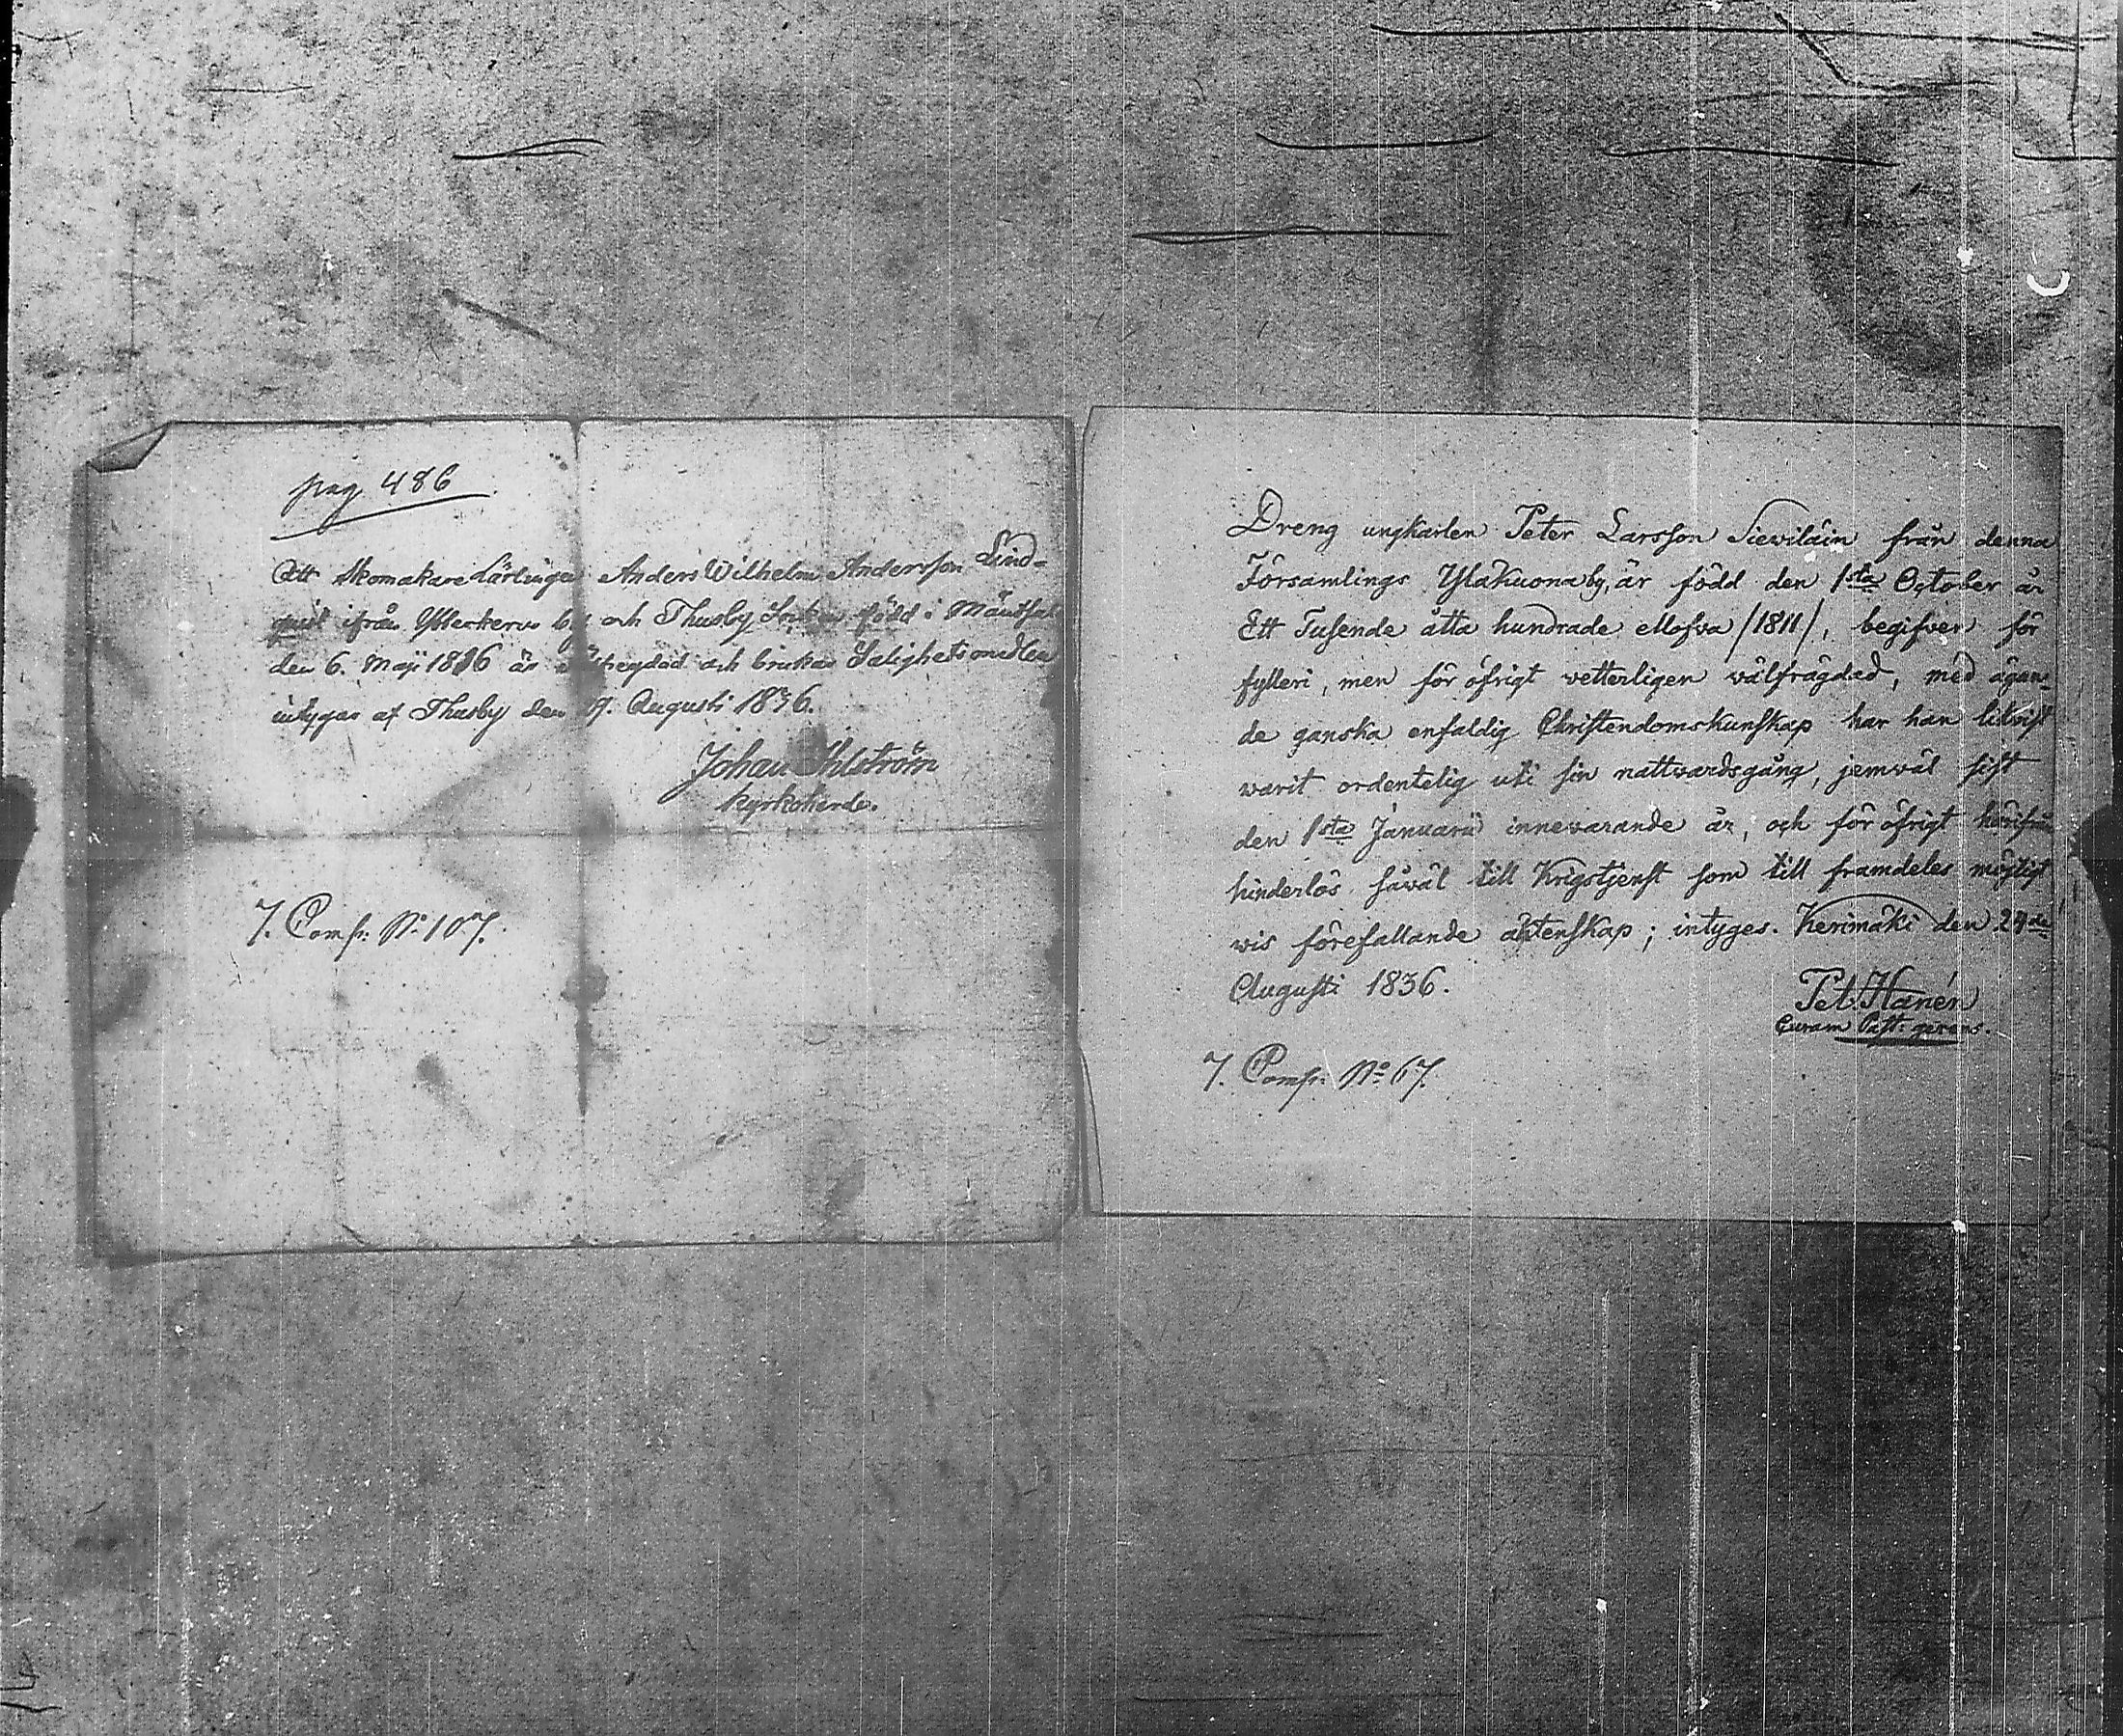 pag 486
Att Skomakare Lärlingen Anders Wilhelm Andersson Lind-
quist ifrån Ylikerkers by och Thusby Socken född i Mäntsel
den 6. Maji 1816 är välfregdad och brukar Salighetsmedlen
intygar af Thusby den 19. Augusti 1836.
Johan Ahlström
Kyrkoherde.
7. Comp: No 107.
Dreng ungkarlen Peter Larsson Sieviläin från denna
Församlings Ylakuona by, är född den 1sta October år
Ett Tusende åtta hundrade ellofva /1811/, begifven för
fylleri, men för öfrigt vetterligen välfrägdad, med ägan-
de ganska enfaldig Christendomskunskap har han likvist
warit ordentelig uti sin nattvardsgång, jemväl sist
den 1sta Januarii innevarande år, och för öfrigt härifrån
hinderlös såväl till Krigstjenst som till framdeles möjligt
wis förefallande äktenskap; intyges. Kerimäki den 24de
Augusti 1836.
Pet. Hanén
Curam Past: gerens.
7. Comp: No 67.